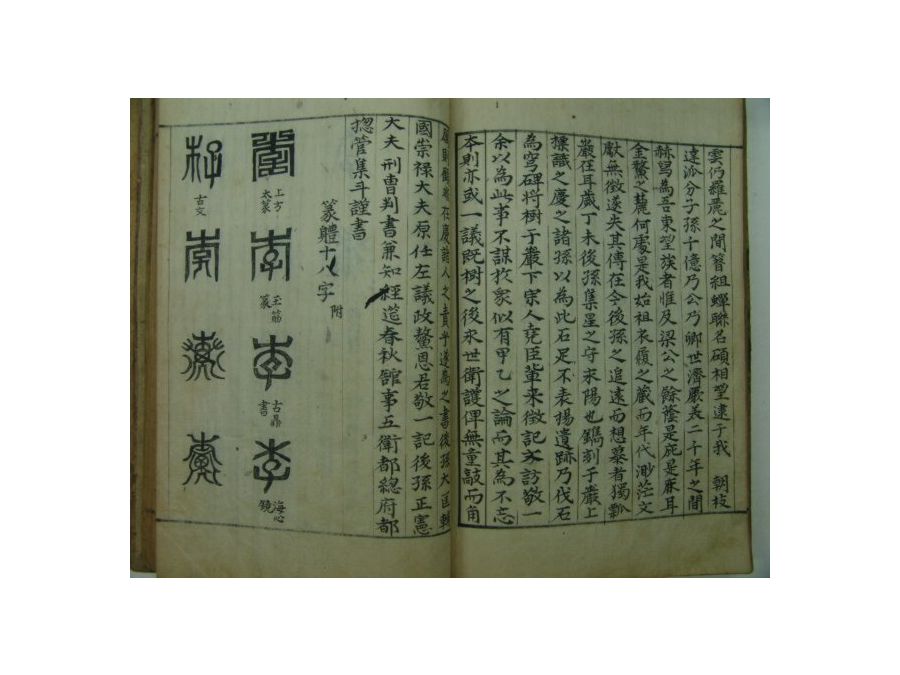 雲仍羅麗之間簪組蟬聯名碩相望逮于我 朝枝
達派分子孫千億乃公乃卿世濟厥美二千年之間
赫舄為吾東望族者惟及梁公之餘蔭是庇是庥耳
金鰲之麓何處是我始祖衣履之藏而年代渺茫文
獻無徵遂失其傳在今後孫之追遠而想慕者獨瓢
巖在耳歲丁未後孫集星之守永陽也鐫刻于巖上
標識之慶之諸孫以為此石足不表揚遺跡乃伐石
為穹碑將樹于巖下宗人堯臣軰来徵記文訪敬一
余以為此事不謀於衆似有甲乙之論而其為不忘
本則亦或一議既樹之後永世衛護俾無童敲而角
在慶諸人之責乎遂為之書後孫大匡輔
國崇祿大夫原任左議政鰲恩君敬一記後孫正憲
大夫刑曹判書兼知經筵春秋館事五衛都總府都
摠管集斗謹書
篆體十八字 附
上方大篆
李 玉筯篆
李 古鼎書
李 海心鏡
古文